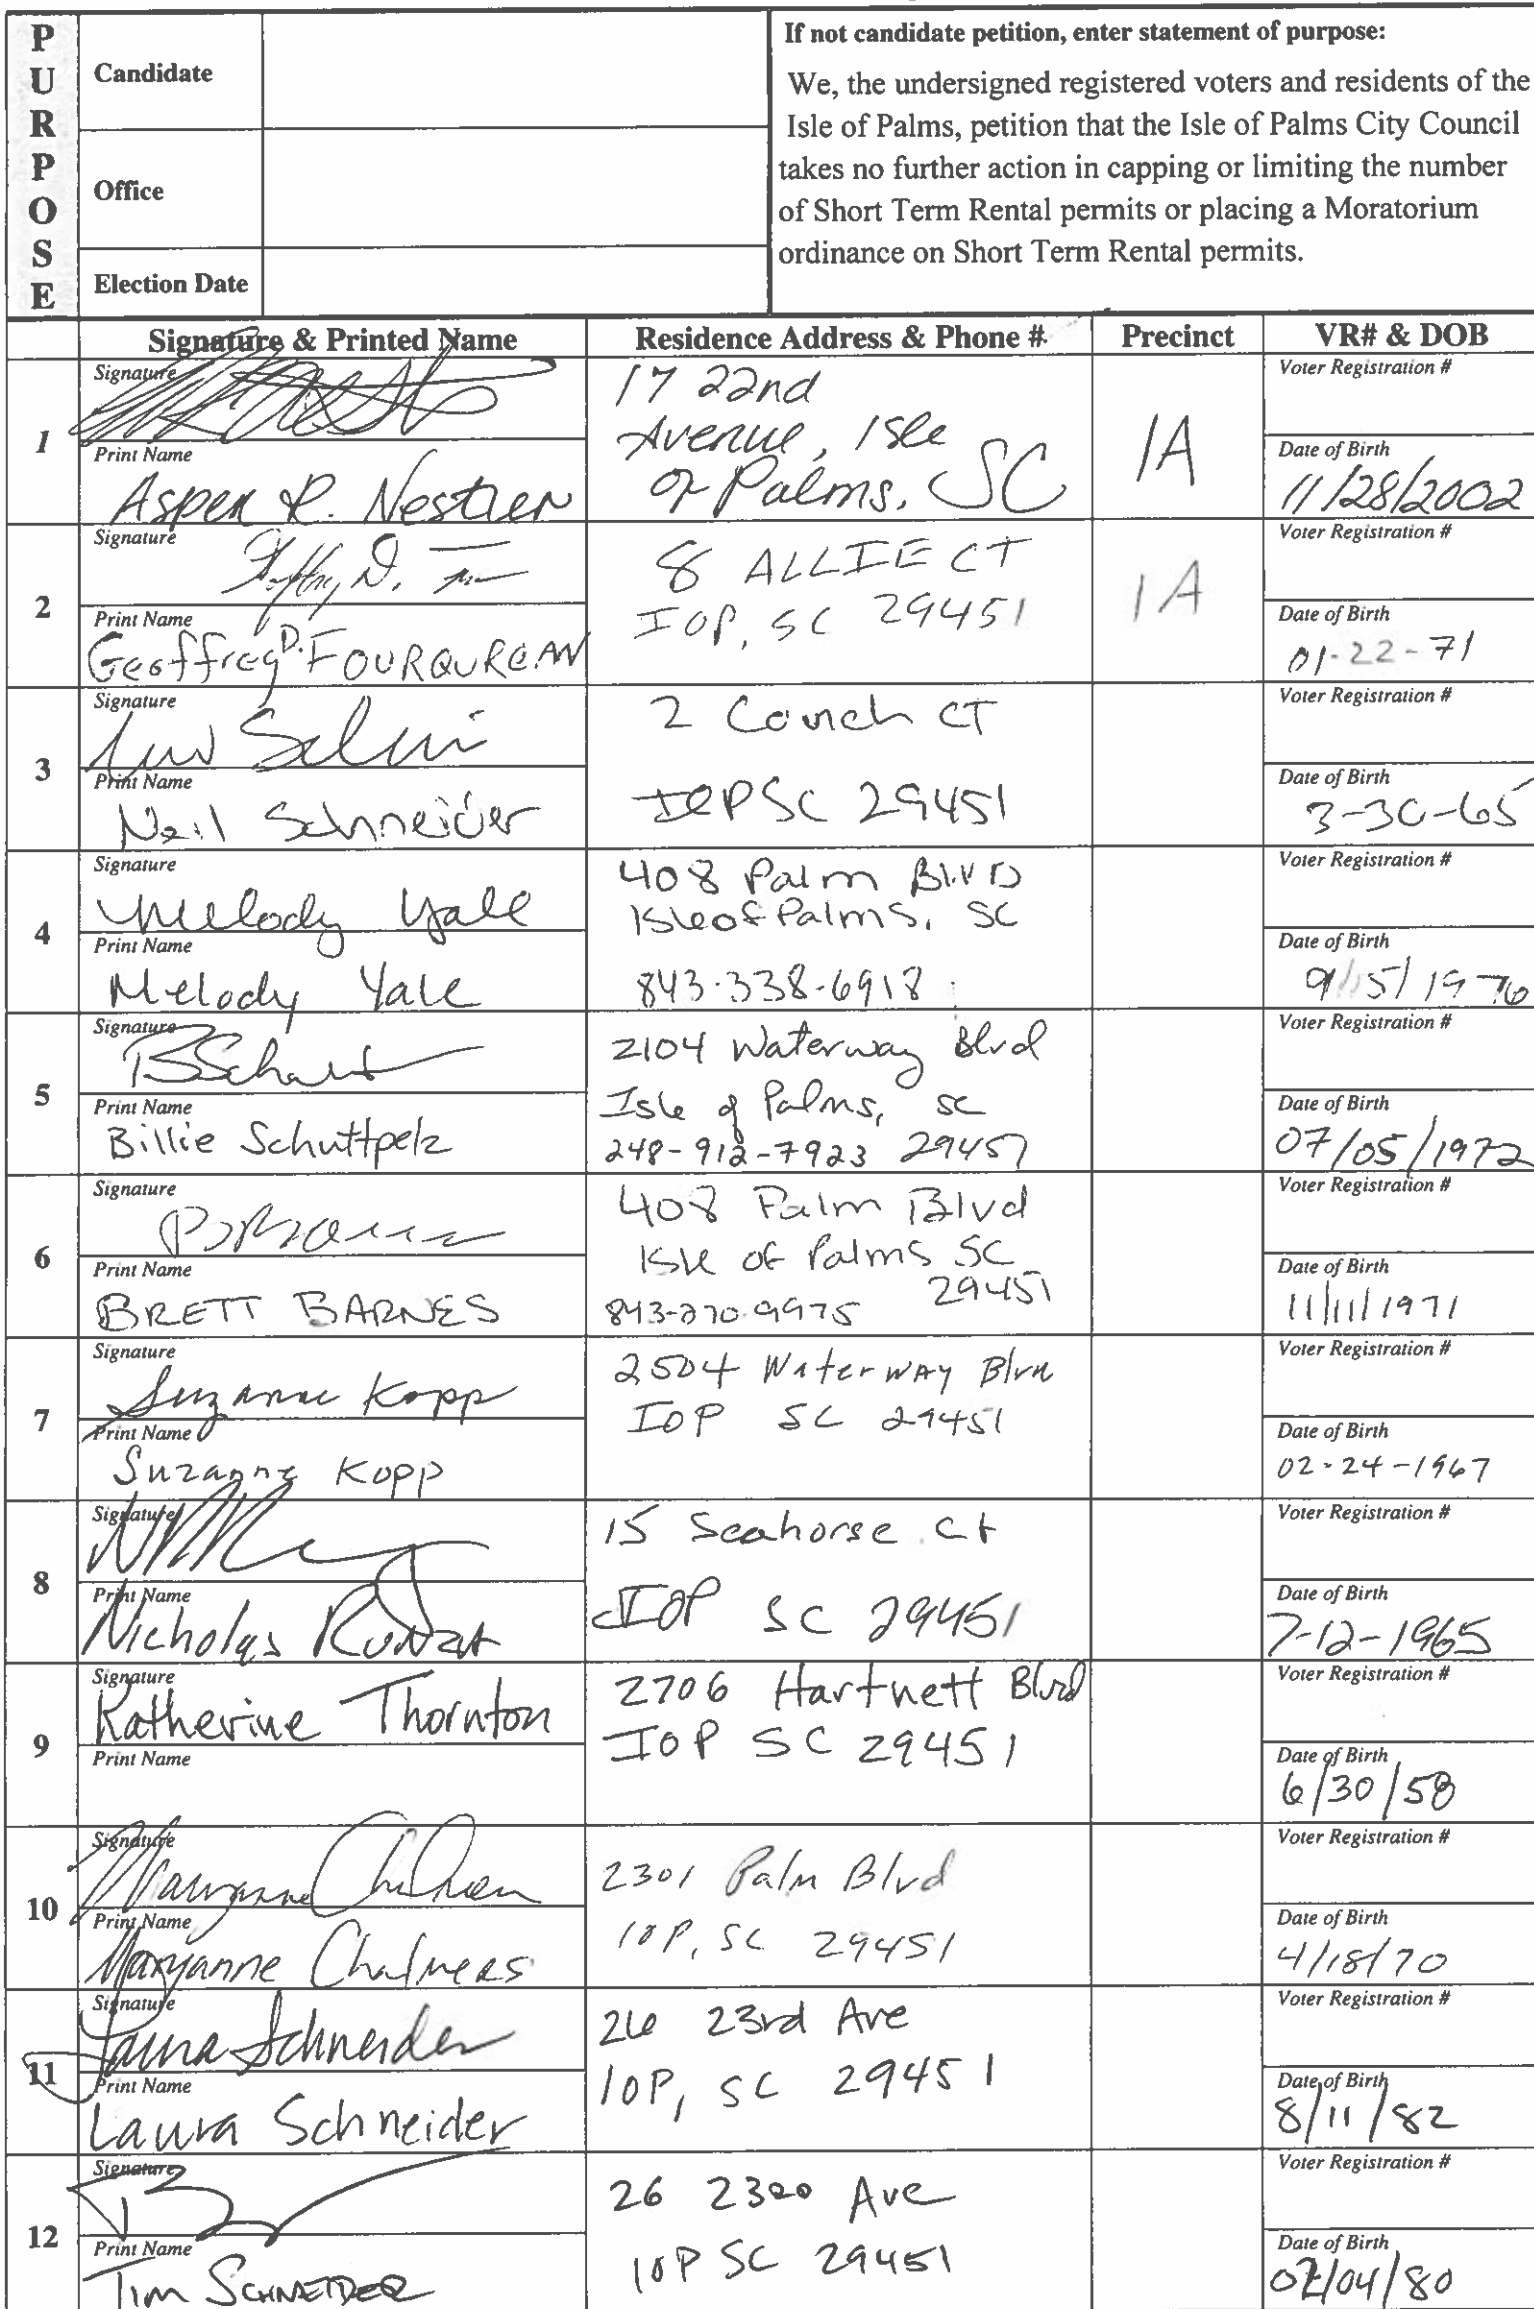 PURPOSE
Candidate
Office
Election Date
If not candidate petition, enter statement of purpose:
We, the undersigned registered voters and residents of the
Isle of Palms, petition that the Isle of Palms City Council
takes no further action in capping or limiting the number
of Short Term Rental permits or placing a Moratorium
ordinance on Short Term Rental permits.
Signature & Printed Name Residence Address & Phone # Precinct VR# & DOB
1
Signature
Print Name
Aspen R. Nestler
17 22nd
Avenue, Isle
of Palms, SC
1A
Voter Registration #
Date of Birth
11/28/2002
2
Signature
Print Name
Geoffrey D. FOURQUREAN
8 ALLIE CT
IOP, SC 29451
1A
Voter Registration #
Date of Birth
01-22-71
3
Signature
Print Name
Neil Schneider
2 Conch CT
IOP SC 29451
Voter Registration #
Date of Birth
3-30-65
4
Signature
Melody Yale
Print Name
Melody Yale
408 Palm BLVD
Isle of Palms, SC
843-338-6918
Voter Registration #
Date of Birth
9/15/1976
5
Signature
Print Name
Billie Schuttpelz
2104 Waterway Blvd
Isle of Palms, SC
248-912-7923 29451
Voter Registration #
Date of Birth
07/05/1972
6
Signature
Print Name
BRETT BARNES
408 Palm Blvd
Isle of Palms SC
29451
843-270-9975
Voter Registration #
Date of Birth
11/11/1971
7
Signature
Suzanne Kopp
Print Name
Suzanne Kopp
2504 Waterway Blvd
IOP SC 29451
Voter Registration #
Date of Birth
02-24-1967
8
Signature
Print Name
Nicholas
15 Seahorse Ct
IOP SC 29451
Voter Registration #
Date of Birth
7-12-1965
9
Signature
Katherine Thornton
Print Name
2706 Hartnett Blvd
IOP SC 29451
Voter Registration #
Date of Birth
6/30/58
10
Signature
Maryanne Chalmers
Print Name
Maryanne Chalmers
2301 Palm Blvd
IOP, SC 29451
Voter Registration #
Date of Birth
4/18/70
11
Signature
Laura Schneider
Print Name
Laura Schneider
26 23rd Ave
IOP, SC 29451
Voter Registration #
Date of Birth
8/11/82
12
Signature
Print Name
TIM SCHNEIDER
26 23RD Ave
IOP SC 29451
Voter Registration #
Date of Birth
02/04/80